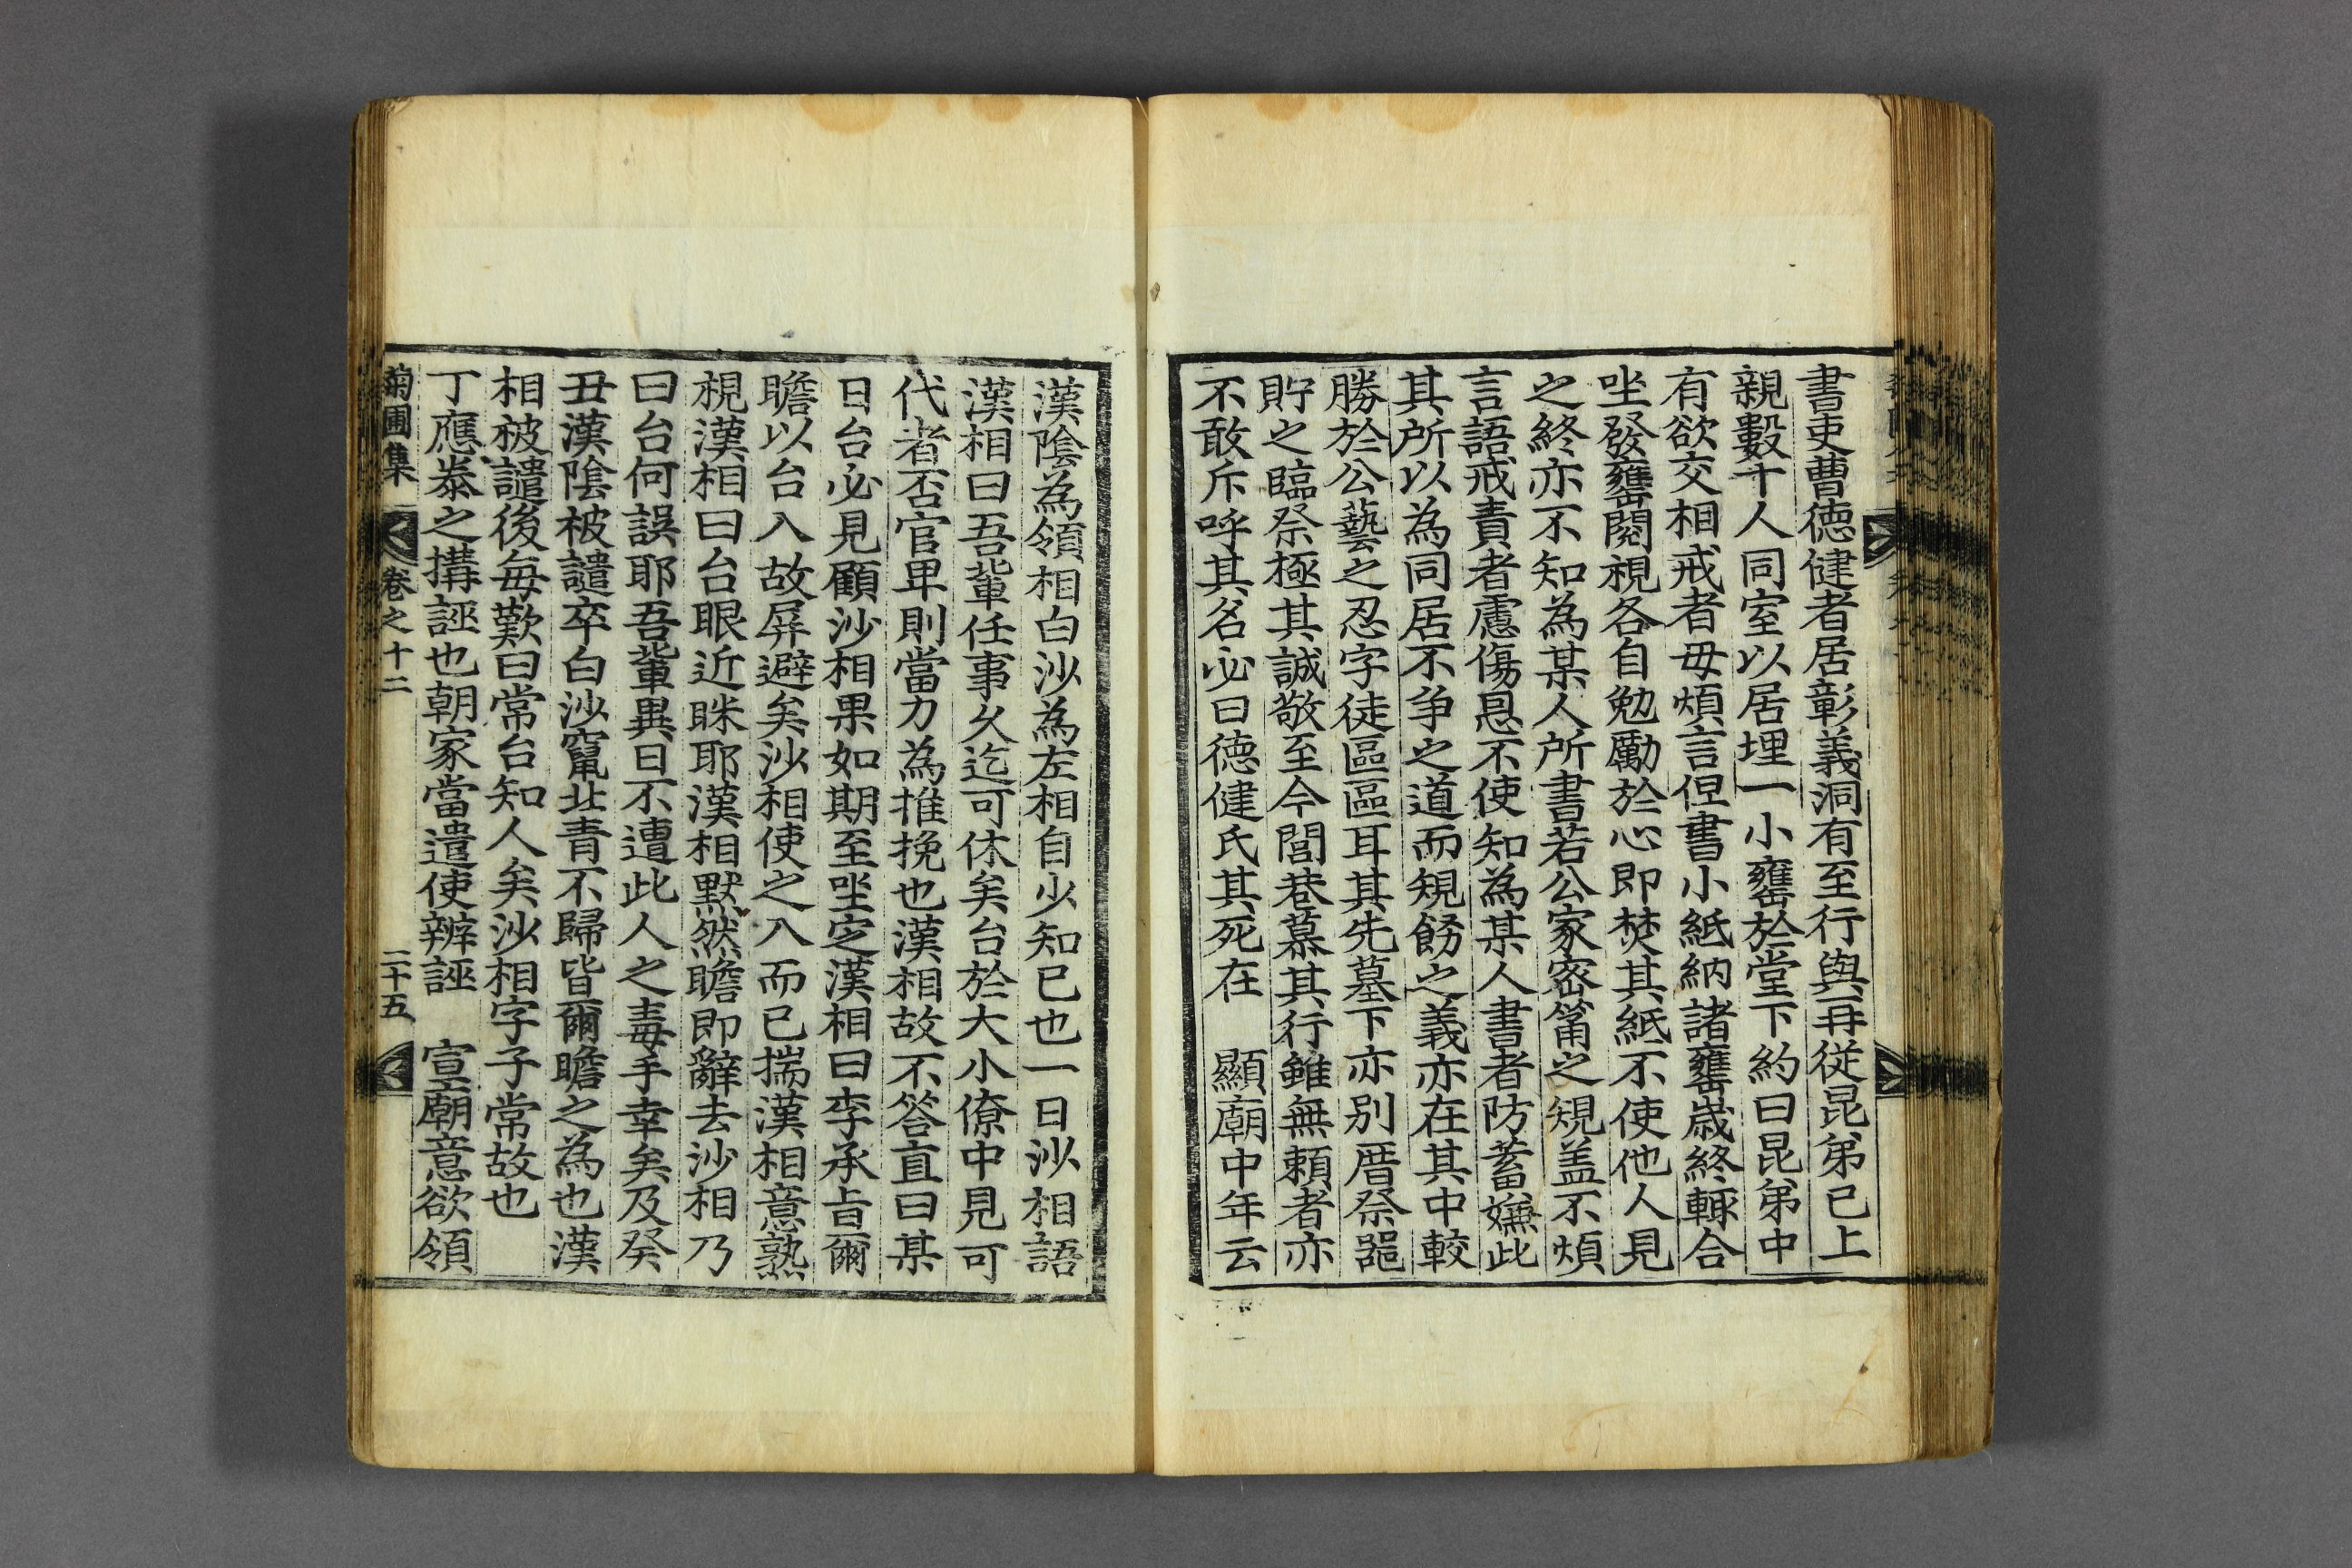 書吏曹德健者居彰義洞有至行與再從昆弟已上
親數十人同室以居埋一小甕於堂下約曰昆弟中
有欲交相戒者毋煩言但書小紙納諸甕歲終輒合
坐發甕閱視各自勉勵於心即焚其紙不使他人見
之終亦不知為某人所書若公家密筩之規盖不煩
言語戒責者慮傷恩不使知為某人書者防蓄嫌此
其所以為同居不爭之道而規飭之義亦在其中較
勝於公藝之忍字徒區區耳其先墓下亦別厝祭器
貯之臨祭極其誠敬至今閭巷慕其行雖無賴者亦
不敢斥呼其名必曰德健氏其死在　顯廟中年云
漢陰為領相白沙為左相自少知已也一日沙相語
漢相曰吾輩任事久迄可休矣台於大小僚中見可
代者否官卑則當力為推挽也漢相故不答直曰某
日台必見顧沙相果如期至坐定漢相曰李承旨爾
瞻以台入故屏避矣沙相使之入而已揣漢相意熟
視漢相曰台眼近眯耶漢相默然瞻即辭去沙相乃
曰台何誤耶吾輩異日不遭此人之毒手幸矣及癸
丑漢陰被譴卒白沙竄北青不歸皆爾瞻之為也漢
相被譴後每歎曰常台知人矣沙相字子常故也
丁應泰之搆誣也朝家當遣使辨誣　宣廟意欲領
菊圃集　卷之十二　二十五